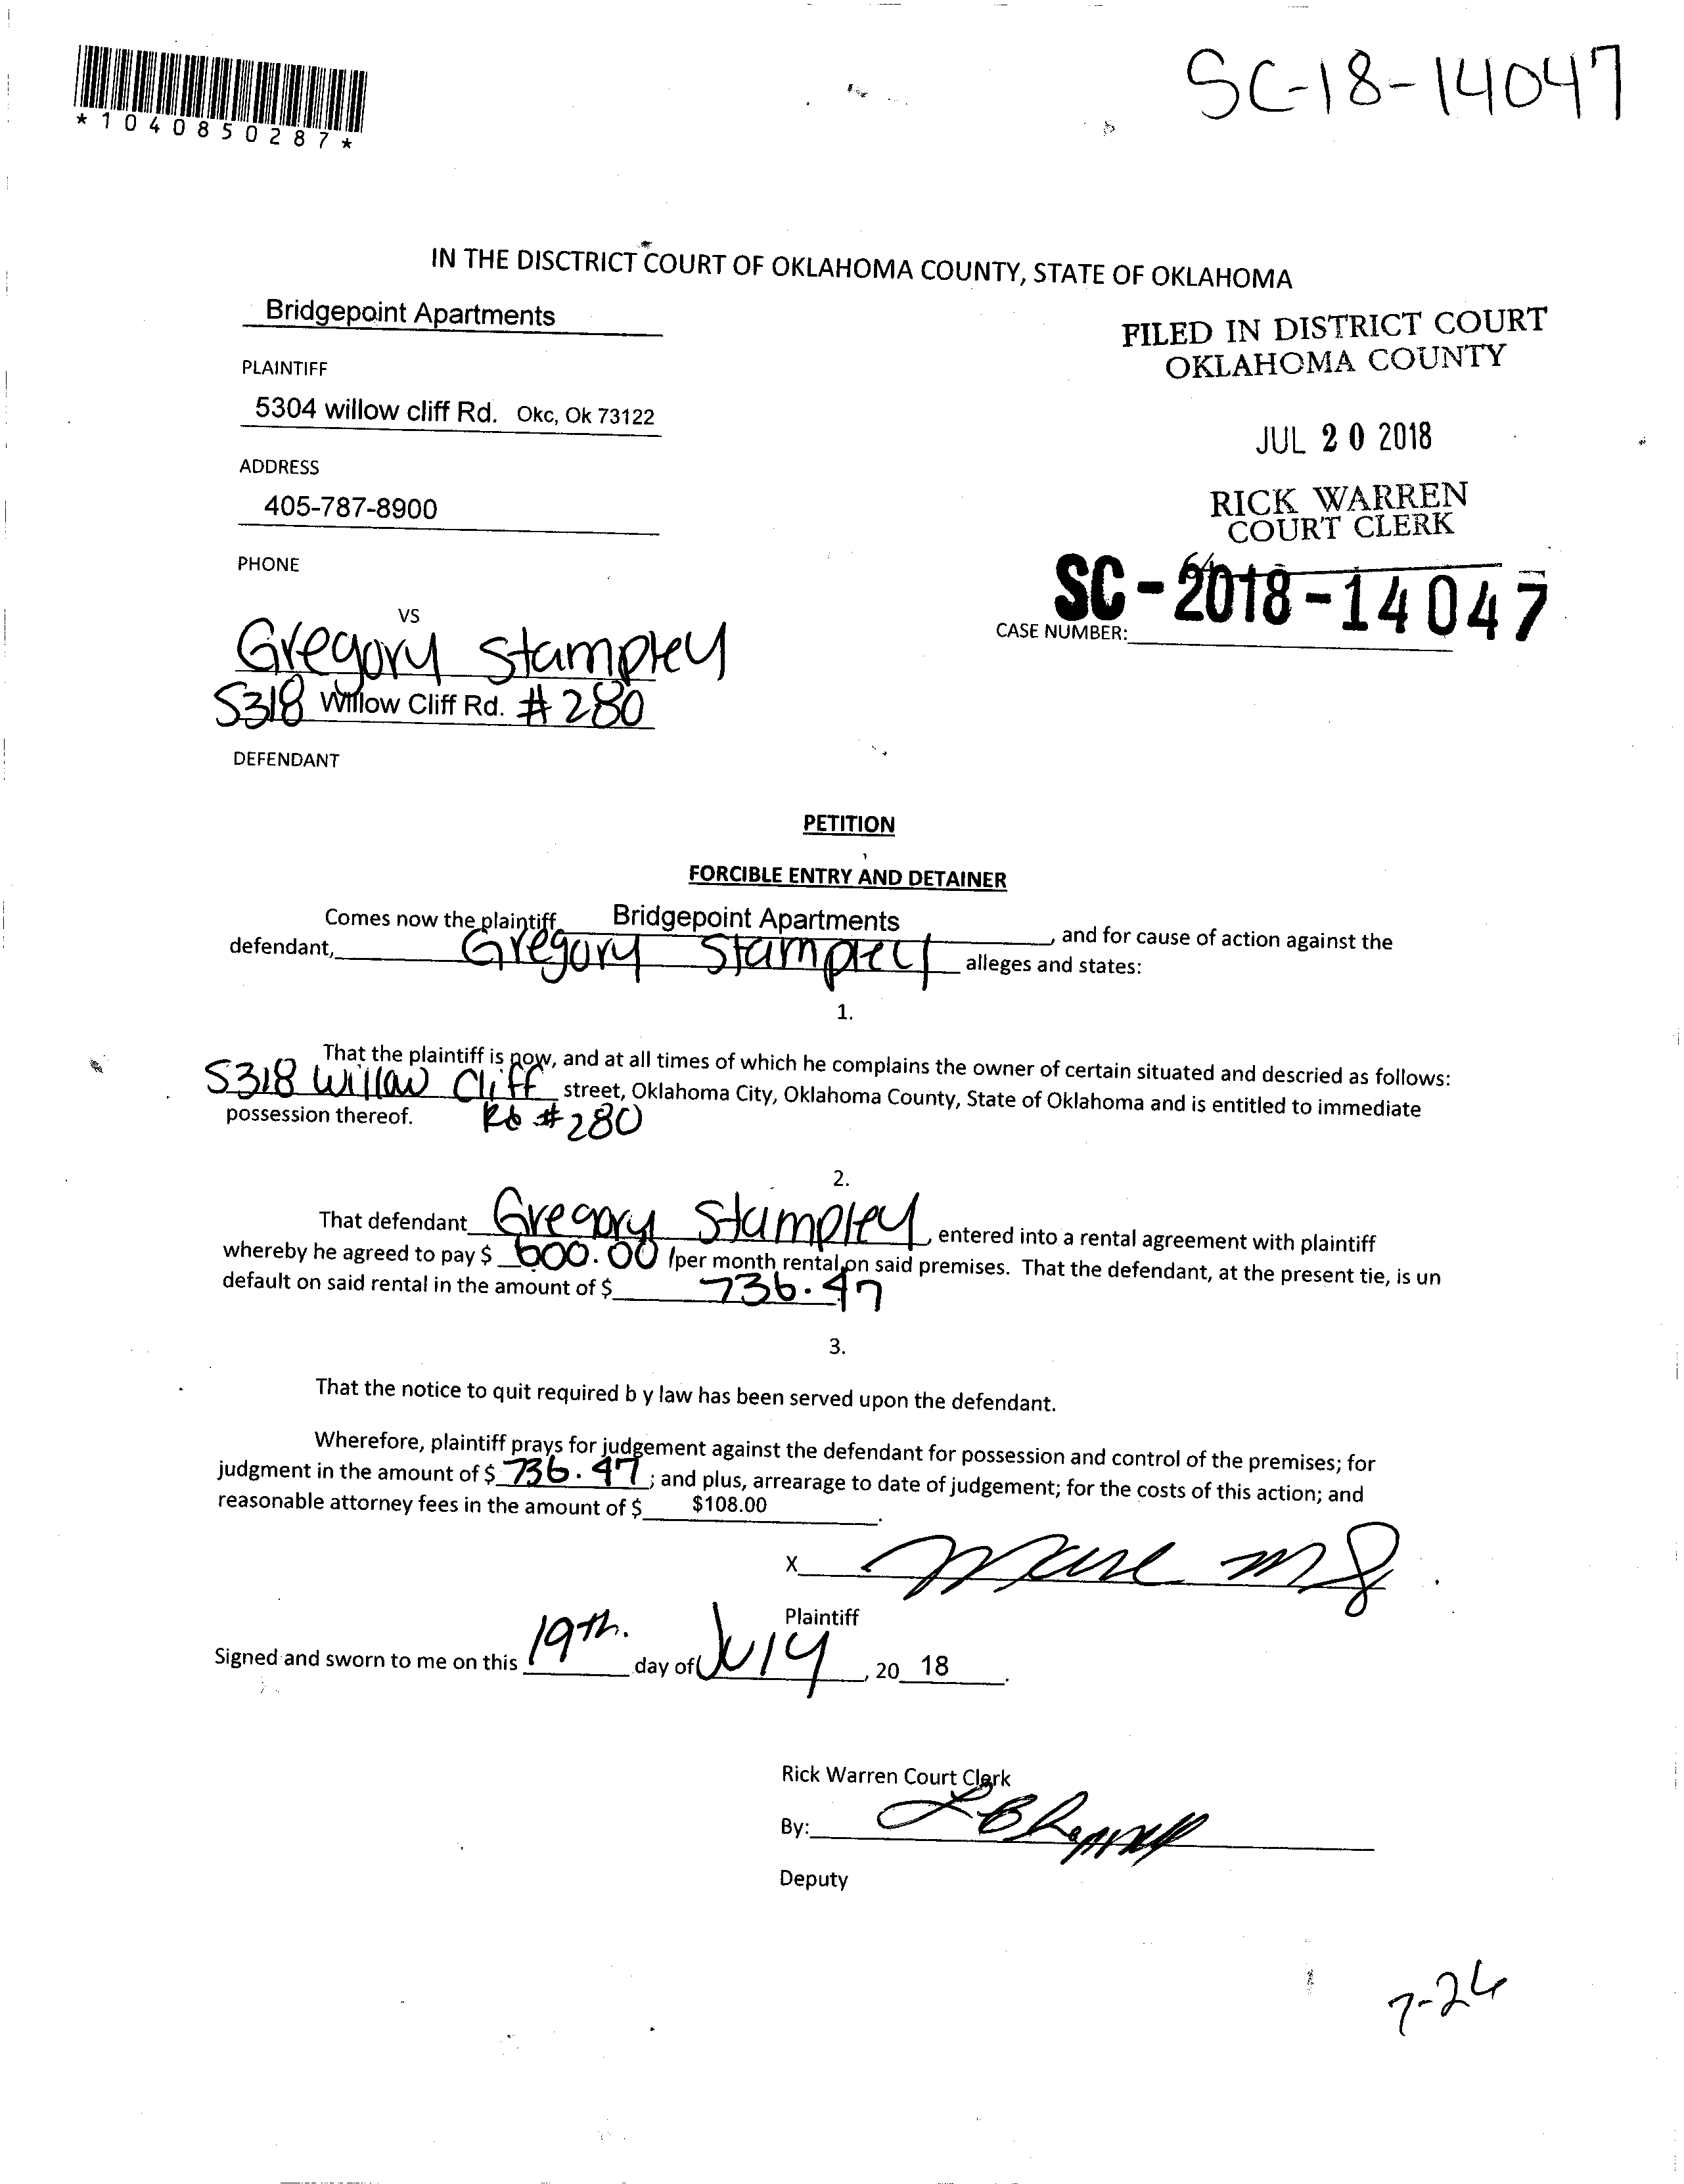 SC-18-14047
*1040850287*
IN THE DISCTRICT COURT OF OKLAHOMA COUNTY, STATE OF OKLAHOMA
Bridgepoint Apartments
PLAINTIFF
5304 willow cliff Rd. Okc, Ok 73122
ADDRESS
405-787-8900
PHONE
FILED IN DISTRICT COURT
OKLAHOMA COUNTY
JUL 20 2018
RICK WARREN
COURT CLERK
SC-2018-14047
CASE NUMBER:
VS
Gregory Stampley
5318 Willow Cliff Rd. # 280
DEFENDANT
PETITION
FORCIBLE ENTRY AND DETAINER
Comes now the plaintiff Bridgepoint Apartments, and for cause of action against the
defendant, Gregory Stampley alleges and states:
1.
That the plaintiff is now, and at all times of which he complains the owner of certain situated and descried as follows:
5318 Willow Cliff street, Oklahoma City, Oklahoma County, State of Oklahoma and is entitled to immediate
possession thereof. Rd #280
2.
That defendant Gregory Stampley, entered into a rental agreement with plaintiff
whereby he agreed to pay $ 600.00 /per month rental on said premises. That the defendant, at the present tie, is un
default on said rental in the amount of $ 736.47
3.
That the notice to quit required b y law has been served upon the defendant.
Wherefore, plaintiff prays for judgement against the defendant for possession and control of the premises; for
judgment in the amount of $ 736.47; and plus, arrearage to date of judgement; for the costs of this action; and
reasonable attorney fees in the amount of $ $108.00.
X
Plaintiff
Signed and sworn to me on this 19th. day of July, 20 18.
Rick Warren Court Clerk
By:
Deputy
7-24